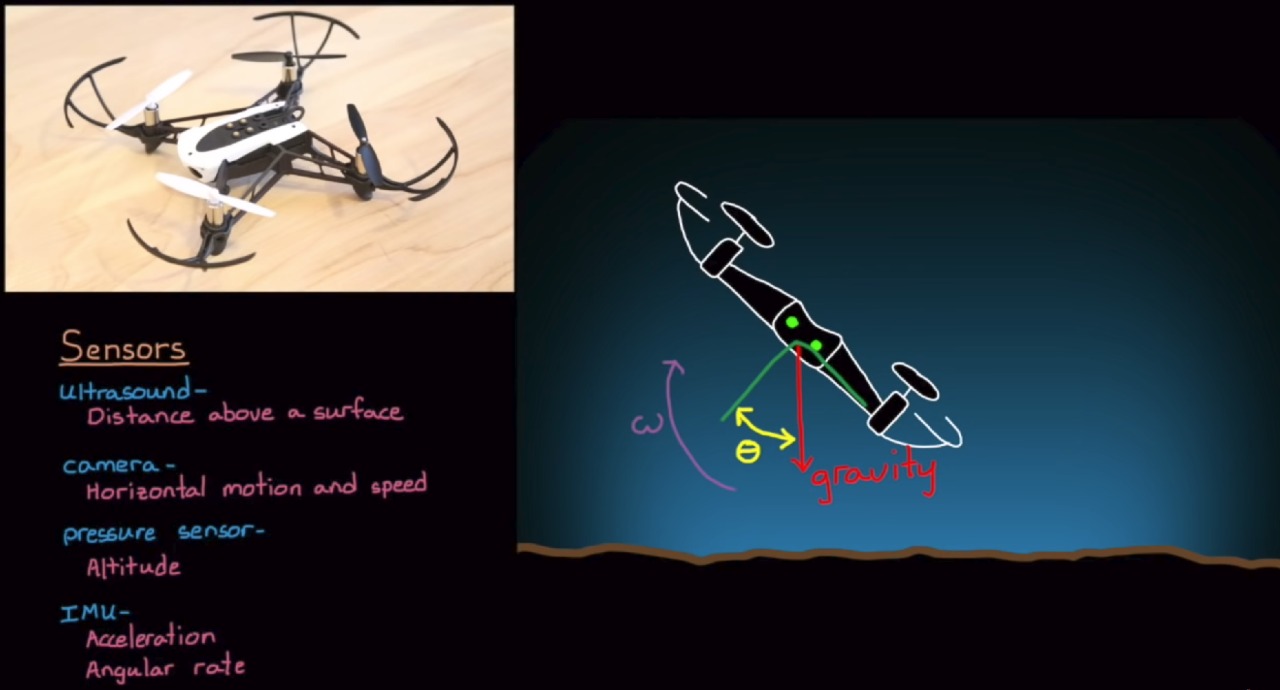 Sensors
ultrasound-
Distance above a surface
camera-
Horizontal motion and speed
pressure sensor-
Altitude
IMU-
Acceleration
Angular rate
ω
θ
gravity